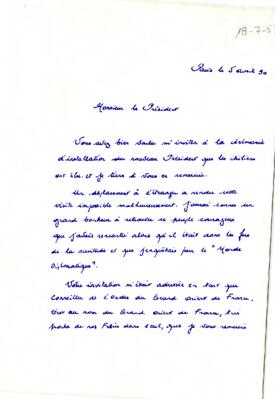 18-7-5
Paris le 5 avril 90
Monsieur le Président
Vous avez bien voulu m'inviter à la cérémonie
d'installation du nouveau Président que les chiliens
ont élu et je tiens à vous en remercier.
Un déplacement à l'étranger a rendu cette
visite impossible malheureusement. J'aurais connu un
grand bonheur à retrouver ce peuple courageux
que j'avais rencontré alors qu'il était dans les
de la servitude et que j'enquêtais pour le "Monde
Diplomatique".
Votre invitation m'était adressée en tant que
Conseiller de l'Ordre du Grand Orient de France.
au nom du Grand Orient de France, très
proche de nos Frères dans l'exil, que je vous remercie